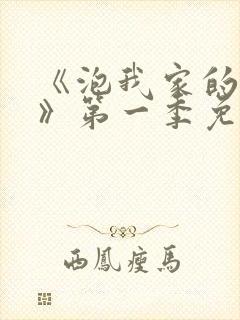 《泡我家的
》第一季免
西鳳瘦馬